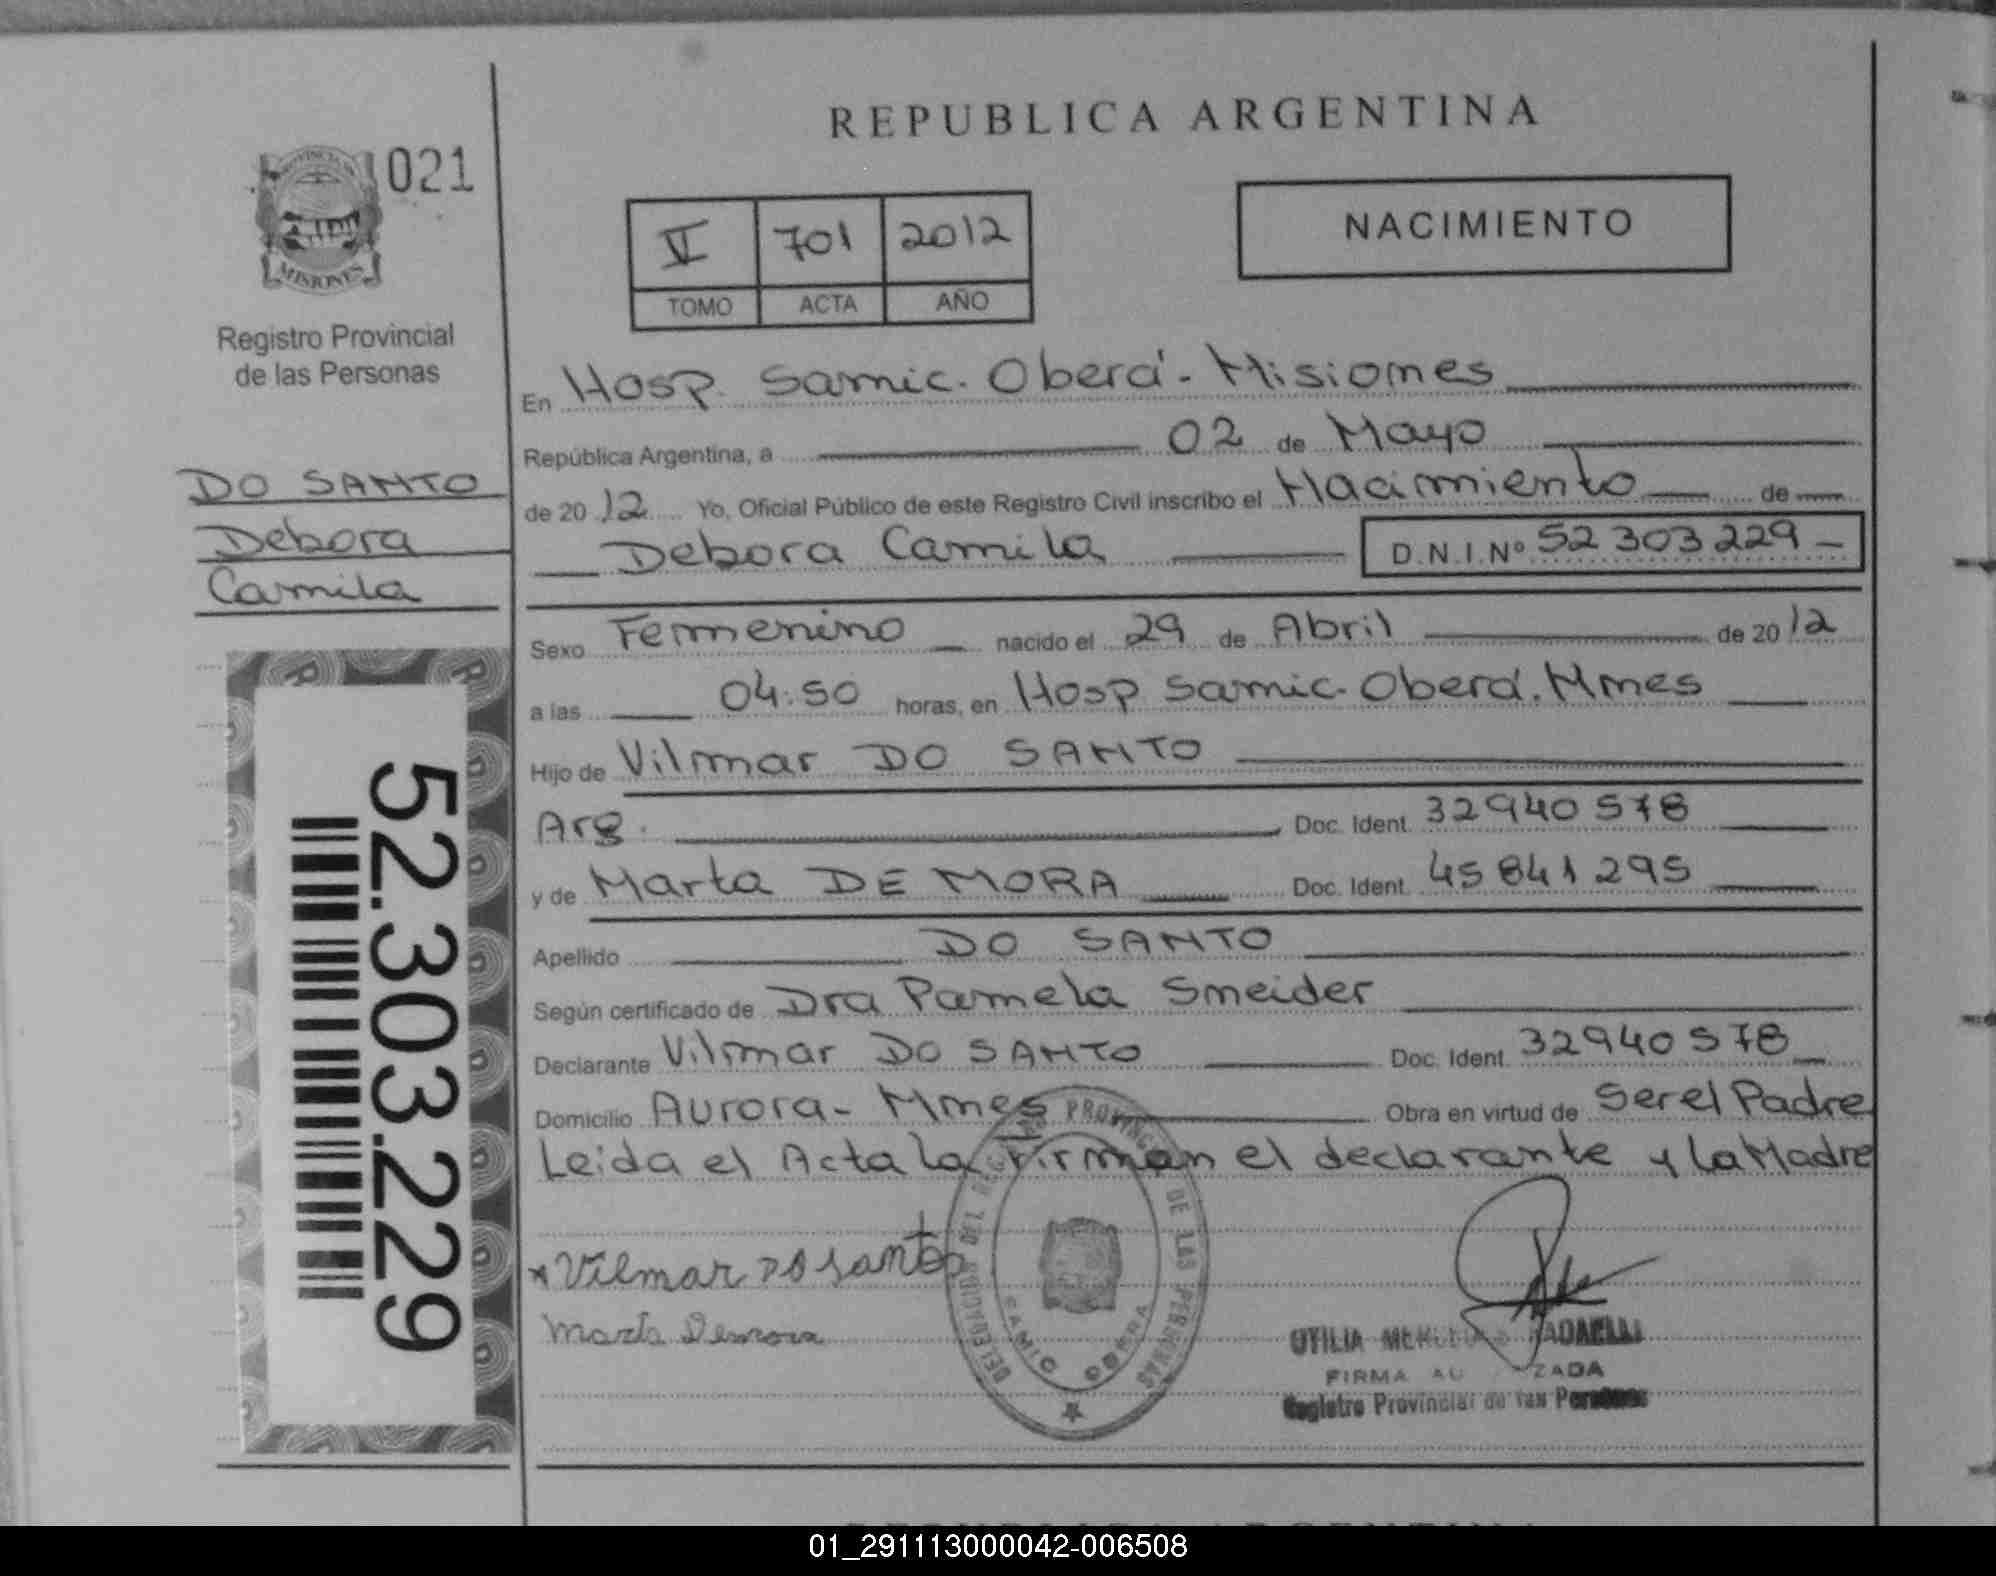 REPUBLICA ARGENTINA
021
PROVINCIA DE
MISIONES
Registro Provincial
de las Personas
V 701 2012
TOMO ACTA AÑO
NACIMIENTO
DO SANTO
Debora
Camila
52.303.229
En Hosp. Samic. Oberá - Misiones
República Argentina, a 02 de Mayo
de 2012 Yo, Oficial Público de este Registro Civil inscribo el Nacimiento de
Debora Camila D.N.I.Nº 52 303 229
Sexo Femenino nacido el 29 de Abril de 2012
a las 04:50 horas, en Hosp Samic. Oberá. Mnes
Hijo de Vilmar DO SANTO
Arg. Doc. Ident. 32940578
y de Marta DE MORA Doc. Ident. 45841295
Apellido DO SANTO
Según certificado de Dra Pamela Sneider
Declarante Vilmar DO SANTO Doc. Ident. 32940578
Domicilio Aurora - Mnes Obra en virtud de Ser el Padre
Leida el Acta la firman el declarante y la Madre
x Vilmar Do Santo
Marta Demora
DELEGACIÓN DEL REG. PROVINCIAL DE LAS PERSONAS
SAMIC OBERA
OTILIA RADAELLI
FIRMA AU ZADA
Registro Provincial de las Personas
01_291113000042-006508